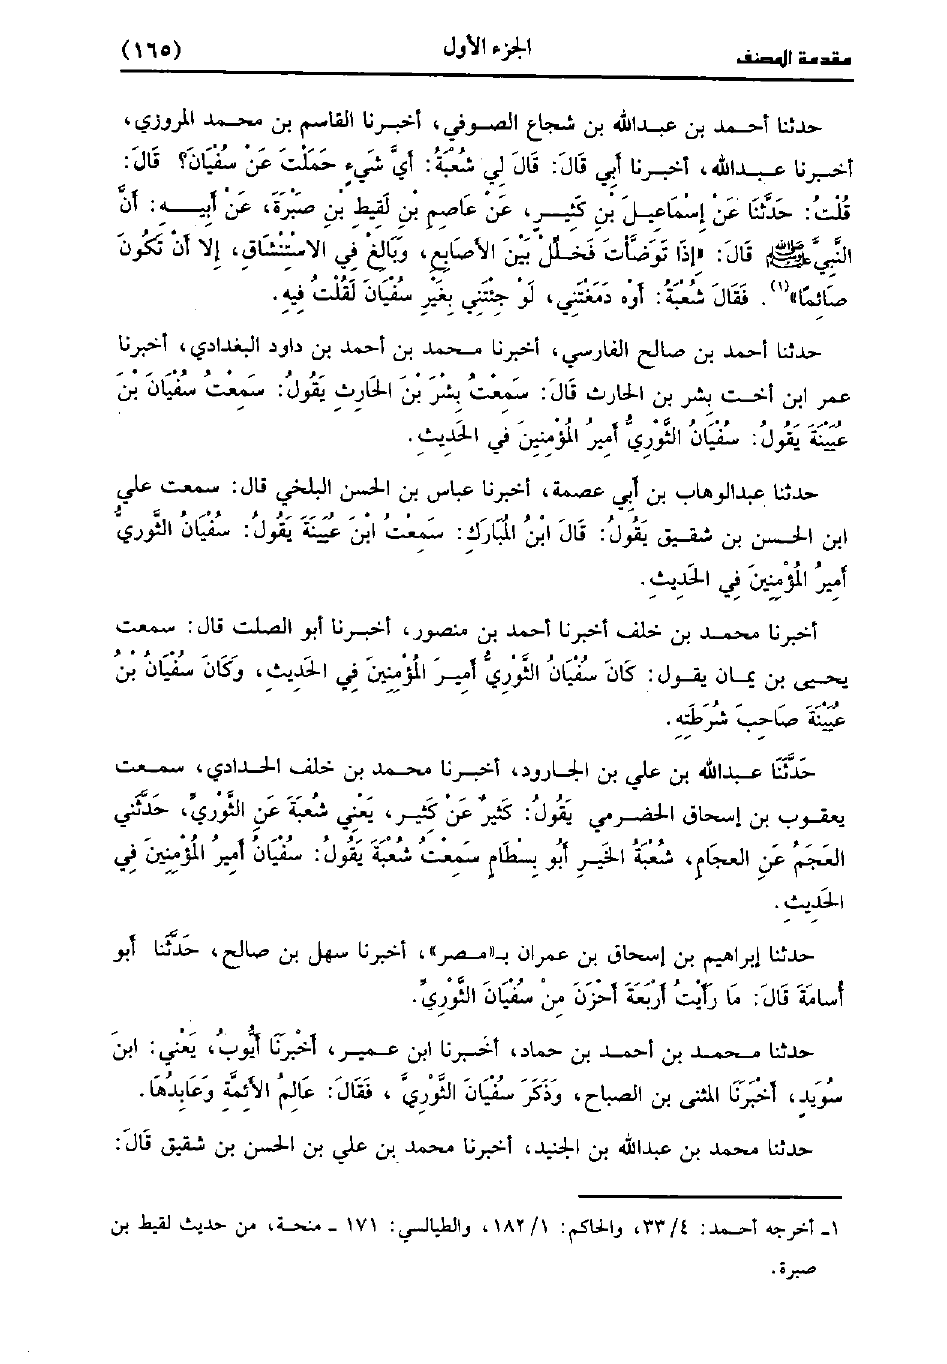 مقدمة المصنف الجزء الأول (١٦٥)
حدثنا أحمد بن عبدالله بن شجاع الصوفي، أخبرنا القاسم بن محمد المروزي،
أخبرنا عبدالله، أخبرنا أبي قالَ: قالَ لي شُعْبَةُ: أيَّ شَيءٍ حَمَلْتَ عَنْ سُفْيَانَ؟ قالَ:
قُلْتُ: حَدَّثَنَا عَنْ إسْمَاعيلَ بنِ كَثِيرٍ، عَنْ عَاصِمِ بنِ لَقيطِ بنِ صَبْرَةَ، عَنْ أبيـهِ: أنَّ
النَّبيَّ ﷺ قَالَ: «إذَا تَوَضَّأتَ فَخَلِّلْ بَيْنَ الأصَابِعِ، وَبَالِغْ في الاسْتِنْشَاقِ، إلا أنْ تَكُونَ
صَائِمًا»(١). فَقَالَ شُعْبَةُ: أوْه دَمَغْتَني، لَوْ جِئْتَني بِغَيْرِ سُفْيَانَ لَقُلْتُ فِيهِ.
حدثنا أحمد بن صالح الفارسي، أخبرنا محمد بن أحمد بن داود البغدادي، أخبرنا
عمر ابن أخت بشر بن الحارث قَالَ: سَمِعْتُ بِشْرَ بْنَ الحَارِثِ يَقُولُ: سَمِعْتُ سُفْيَانَ بْنَ
عُيَيْنَةَ يَقُولُ: سُفْيَانُ الثَّوْرِيُّ أمِيرُ المُؤْمِنِينَ فِي الحَدِيثِ.
حدثنا عبدالوهاب بن أبي عصمة، أخبرنا عباس بن الحسن البلخي قال: سمعت علي
ابن الحسن بن شقيق يَقُولُ: قَالَ ابْنُ المُبَارَكِ: سَمِعْتُ ابْنَ عُيَيْنَةَ يَقُولُ: سُفْيَانُ الثَّوْرِيُّ
أمِيرُ المُؤْمِنِينَ فِي الحَدِيثِ.
أخبرنا محمد بن خلف أخبرنا أحمد بن منصور، أخبرنا أبو الصلت قال: سمعت
يحيى بن يمان يقول: كَانَ سُفْيَانُ الثَّوْرِيُّ أمِيرَ المُؤْمِنِينَ فِي الحَدِيثِ، وَكَانَ سُفْيَانُ بْنُ
عُيَيْنَةَ صَاحِبَ شُرْطَتِهِ.
حَدَّثَنَا عبدالله بن علي بن الجارود، أخبرنا محمد بن خلف الحدادي، سمعت
يعقوب بن إسحاق الحضرمي يَقُولُ: كَثيرٌ عَنْ كَثِيرٍ، يَعْنِي شُعْبَةَ عَنِ الثَّوْرِيِّ، حَدَّثَنِي
العَجَمُ عَنِ العجام، شُعْبَةُ الخَيرِ أبُو بِسْطَامٍ سَمِعْتُ شُعْبَةَ يَقُولُ: سُفْيَانُ أمِيرُ المُؤْمِنِينَ فِي
الحَدِيثِ.
حدثنا إبراهيم بن إسحاق بن عمران بـ«مصر»، أخبرنا سهل بن صالح، حَدَّثَنَا أبُو
أُسَامَةَ قَالَ: مَا رَأيْتُ أرْبَعَةَ أحْزَنَ مِنْ سُفْيَانَ الثَّوْرِيِّ.
حدثنا محمد بن أحمد بن حماد، أخبرنا ابن عمير، أخْبَرَنَا أيُّوبُ، يَعْنِي: ابنَ
سُوَيدٍ، أخْبَرَنَا المثنى بن الصباح، وَذَكَرَ سُفْيَانَ الثَّوْرِيَّ، فَقَالَ: عَالِمُ الأئِمَّةِ وَعَابِدُهَا.
حدثنا محمد بن عبدالله بن الجنيد، أخبرنا محمد بن علي بن الحسن بن شقيق قَالَ:
١ـ أخرجه أحمد: ٣٣/٤، والحاكم: ١٨٢/١، والطيالسي: ١٧١ ـ منحة، من حديث لقيط بن
صبرة.